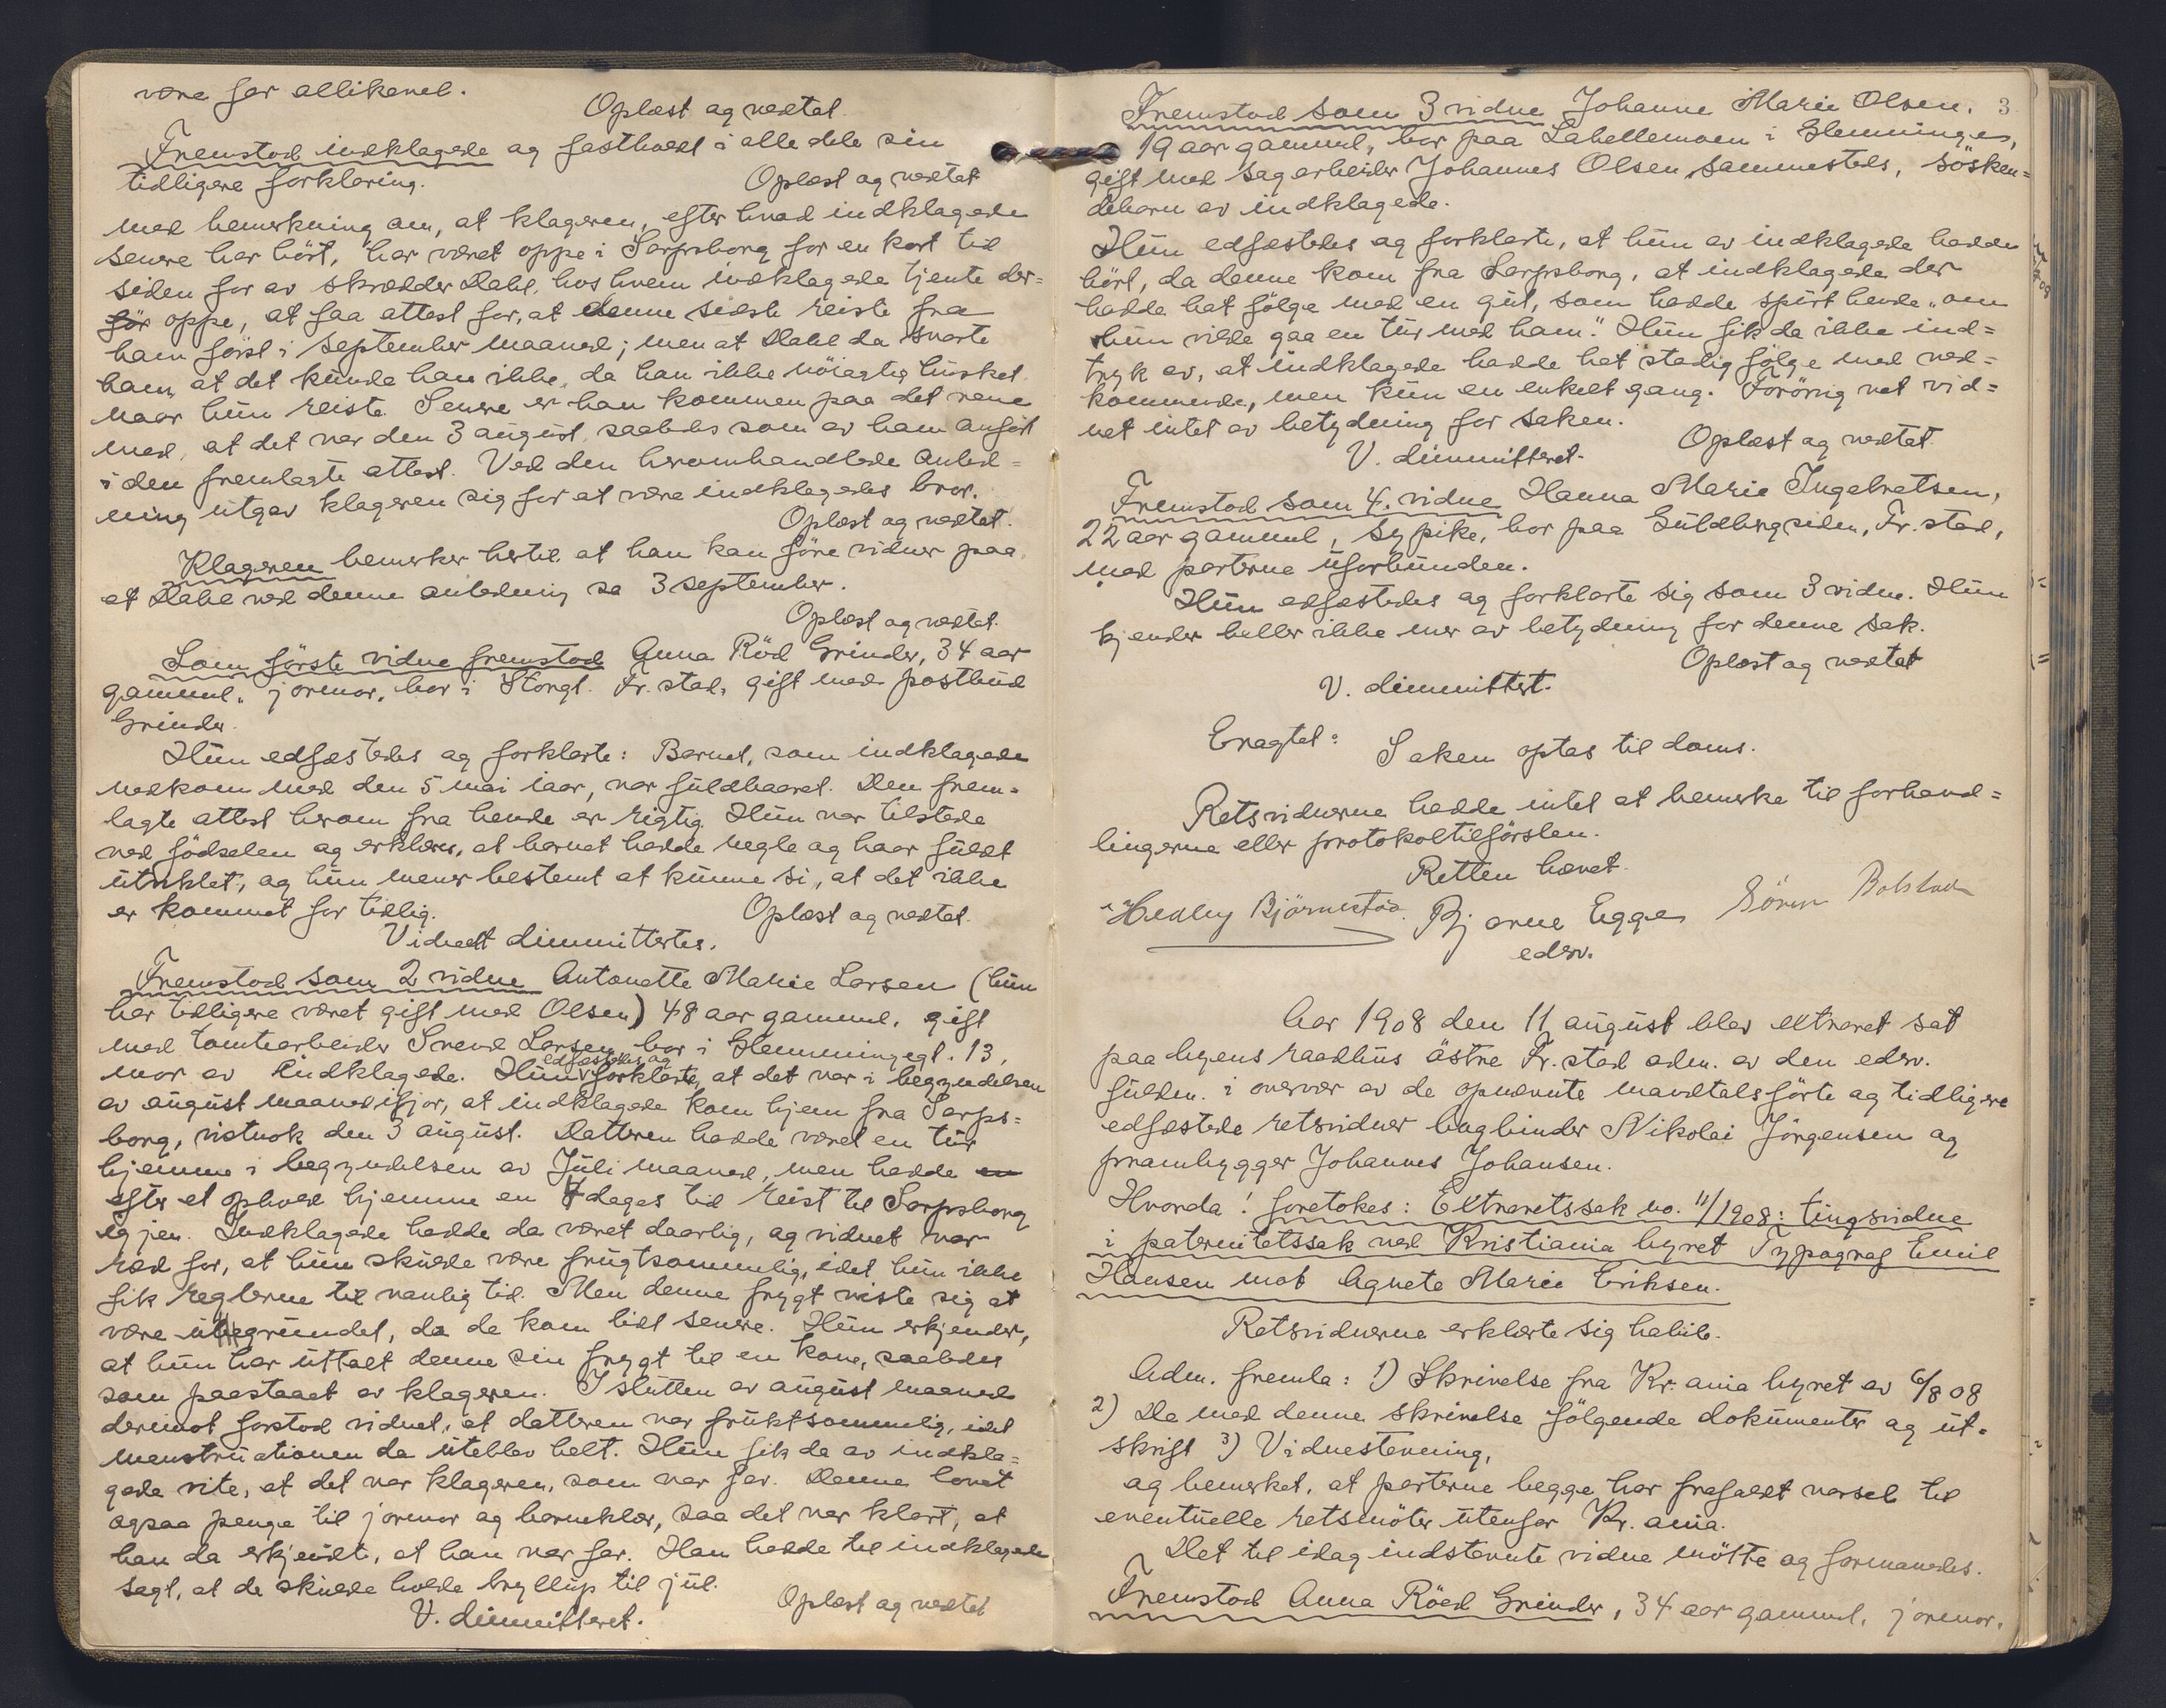 være far allikevel.
Oplæst og vedtat.
Fremstod indklagede og fastholdt i alle dele sin
tidligere forklaring.
Oplæst og vedtat
med bemerkning om, at klageren, efter hvad indklagede
senere har hört, har været oppe i Sarpsborg for en kort tid
siden for av skrædder Dahl, hos hvem indklagede tjente der=
för oppe, at faa attest for, at denne sidste reiste fra
ham först i September maaned; men at Dahl da svarte
ham, at det kunde han ikke, da han ikke nöiagtig husket
naar hun reiste. Senere er han kommen paa det rene
med, at det var den 3 august, saaledes som av ham anfört
i den fremlagte attest. Ved den heromhandlede anled=
ning utgav klageren sig for at være indklagedes bror.
Oplæst og vedtat.
Klageren bemerker hertil at han kan före vidner paa
at Dahl ved denne anledning sa 3 september.
Oplæst og vedtat.
Som förste vidne fremstod Anna Röd Grinder, 34 aar
gammel, jormor, bor i Storgt. Fr.stad, gift med postbud
Grinder.
Hun edfæstedes og forklarte: Barnet, som indklagede
nedkom med den 5 mai iaar, var fuldbaaret. Den frem=
lagte attest herom fra hende er rigtig. Hun var tilstede
ved födselen og erklærer, at barnet hadde negle og haar fuldt
utviklet, og hun mener bestemt at kunne si, at det ikke
er kommet for tidlig.
Oplæst og vedtat.
Vidnet dimmittertes.
Fremstod som 2 vidne Antonette Marie Larsen (hun
har tidligere været gift med Olsen) 48 aar gammel, gift
med tomtearbeider Svend Larsen, bor i Glemmingegt. 13,
mor av indklagede. Hun edfæstedes og forklarte, at det var i begyndelsen
av august maaned ifjor, at indklagede kom hjem fra Sarps=
borg, vistnok den 3 august. Datteren hadde været en tur
hjemme i begyndelsen av Juli maaned, men hadde en
efter et ophold hjemme en 8 dages tid reist til Sarpsborg
igjen. Indklagede hadde da været daarlig, og vidnet var
ræd for, at hun skulde være frugtsommelig, idet hun ikke
fik reglerne til vanlig tid. Men denne frygt viste sig at
være ubegrundet, da de kom lidt senere. Hun erkjender,
at hun har uttalt denne sin frygt til en kone, saaledes
som paastaaet av klageren. I slutten av august maaned
derimot forstod vidnet, at datteren var fruktsommelig, idet
menstruationen da uteblev helt. Hun fik da av indkla=
gede vite, at det var klageren, som var far. Denne lovet
ogsaa penge til jormor og barneklær, saa det var klart, at
han da erkjendte, at han var far. Han hadde til indklagede
sagt, at de skulde holde bryllup til jul.
Oplæst og vedtat
V. dimmitteret.
3
Fremstod som 3 vidne Johanne Marie Olsen,
19 aar gammel, bor paa Labellemoen i Glemminge,
gift med sagarbeider Johannes Olsen sammesteds, sösken=
debarn av indklagede.
Hun edfæstedes og forklarte, at hun av indklagede hadde
hört, da denne kom fra Sarpsborg, at indklagede der
hadde hat fölge med en gut, som hadde spurt hende „om
hun vilde gaa en tur med ham." Hun fik da ikke ind=
tryk av, at indklagede hadde hat stadig fölge med ved=
kommende, men kun en enkelt gang. Forövrig vet vid=
net intet av betydning for saken.
Oplæst og vedtat.
V. dimmitteret.
Fremstod som 4. vidne Hanna Marie Ingebretsen,
22 aar gammel, sypike, bor paa Guldbergsiden, Fr.stad,
med parterne uforbunden.
Hun edfæstedes og forklarte sig som 3 vidne. Hun
kjender heller ikke mer av betydning for denne sak.
Oplæst og vedtat
V. dimmittert.
Eragtet: Saken optas til doms.
Retsvidnerne hadde intet at bemerke til forhand=
lingerne eller protokoltilförslen.
Retten hævet.
Hedley Björnestad. Bjarne Egge Sören Bolstad
edsv.
Aar 1908 den 11 august blev extraret sat
paa byens raadhus östre Fr.stad adm. av den edsv.
fuldm. i overvær av de opnævnte mandtalsförte og tidligere
edfæstede retsvidner bogbinder Nikolai Jörgensen og
prambygger Johannes Johansen.
Hvorda! foretokes: Extraretssak no. 11/1908: tingsvidne
i paternitetssak ved Kristiania byret Typograf Emil
Hansen mot Agnete Marie Eriksen.
Retsvidnerne erklærte sig habile.
Adm. fremla: 1) Skrivelse fra Kr.ania byret av 6/8 08
2) De med denne skrivelse fölgende dokumenter og ut=
skrift 3) Vidnestevning,
og bemerket, at parterne begge har frafaldt varsel til
eventuelle retsmöter utenfor Kr.ania.
Det til idag indstevnte vidne mötte og formanedes.
Fremstod Anna Röed Grinder, 34 aar gammel, jormor,